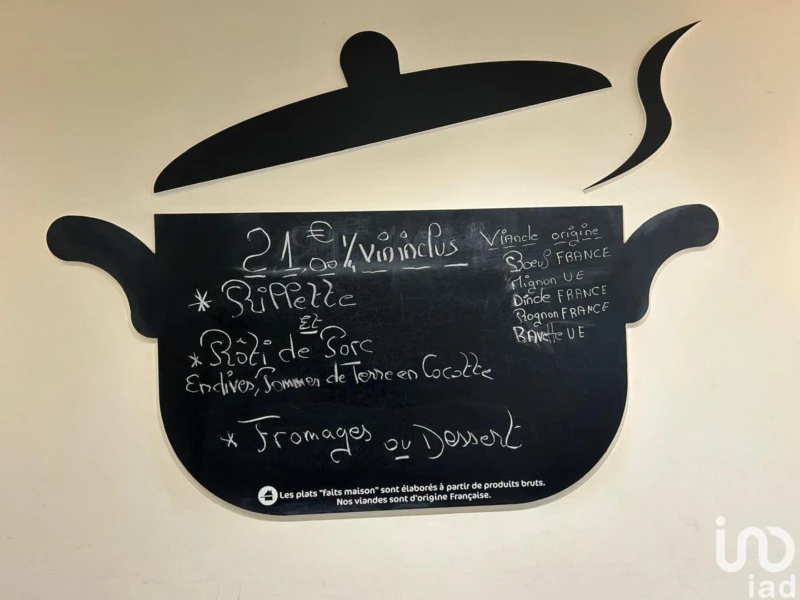 21,00€ ¼ vin inclus
* Rillette
Et
* Rôti de Porc
Endives, Pommes de Terre en Cocotte
* Fromages ou Dessert
Viande origine
Boeuf FRANCE
Mignon UE
Dinde FRANCE
Rognon FRANCE
BAvette UE
Les plats "faits maison" sont élaborés à partir de produits bruts.
Nos viandes sont d'origine Française.
iad